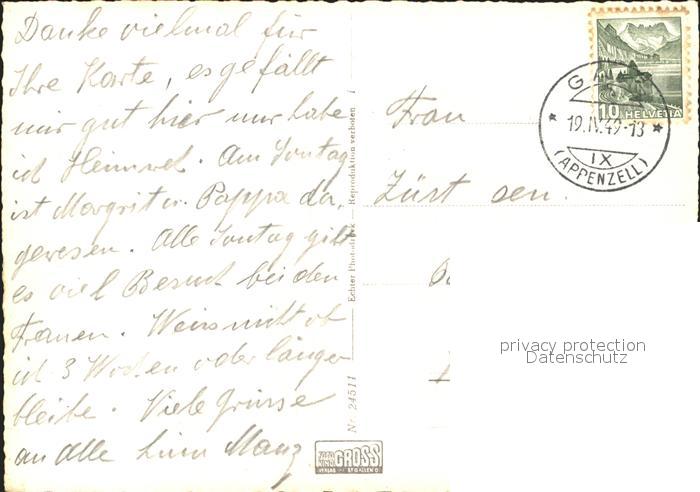 Danke vielmal für
Ihre Karte, es gefällt
mir gut hier nur habe
ich Heimweh. Am Sontag
ist Margrit u. Pappa da,
gewesen. Alle Sontag gibt
es viel Besuch bei den
Frauen. Weiss nicht ob
ich 3 Wochen oder länger
bleibe. Viele Grüsse
an Alle Manz
Nr 24511
Echter Photodruck — Reproduktion verboten
GROSS
VERLAG ST GALLEN O.
Frau
HELVETIA
10
19.IV.49-13
IX
(APPENZELL)
privacy protection
Datenschutz